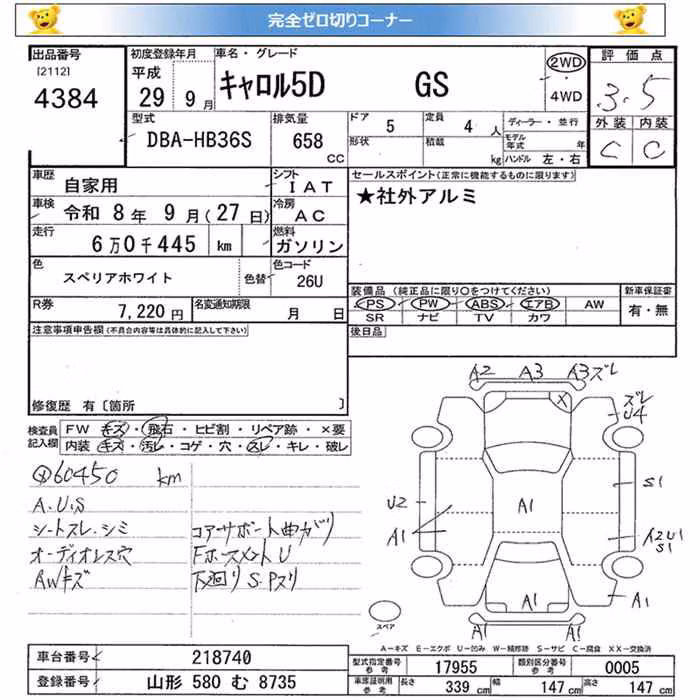 完全ゼロ切りコーナー
出品番号 初度登録年月 車名・グレード 評価点
[2112] 平成 キャロル5D GS 2WD
4384 29 9月 ・ 4WD 3.5
型式 排気量 ドア 5 定員 4 人 ディーラー・並行 外装 内装
DBA-HB36S 658 CC 形状 積載 kg モデル年式 年 C C
ハンドル 左・右
車歴 自家用 シフト IAT セールスポイント(正常に機能するものに限ります)
車検 令和 8年 9月(27日) 冷房 AC ★社外アルミ
走行 6万0千445 km 燃料 ガソリン
色 スペリアホワイト 色替 色コード 26U
装備品(純正品に限り○をつけてください) 新車保証書
R券 7,220円 名変通知期限 月 日 PS PW ABS エアB AW 有・無
SR ナビ TV カワ
注意事項申告欄(不具合内容等は具体的に記入して下さい) 後日品
修復歴 有〔箇所 〕
検査員記入欄 FW キズ・飛石・ヒビ割・リペア跡・×要
内装 キズ・汚レ・コゲ・穴・スレ・キレ・破レ
60450 km
A.U.S
シートスレ.シミ コアーサポート曲ガリ
オーディオレス穴 Fホースメント U
AWキズ 下廻りS.Pスリ
A2 A3 A3ズレ
X
ズレ
U4
S1
U2
A1
A1
A2U1
S1
A1
A1
A1 A1
スペア
A-キズ E-エクボ U-凹み W-補修跡 S-サビ C-腐食 XX-交換済
車台番号 218740 型式指定番号 参考 17955 類別区分番号 参考 0005
登録番号 山形 580 む 8735 車庫証明用 参考 長さ 339 cm 幅 147 cm 高さ 147 cm